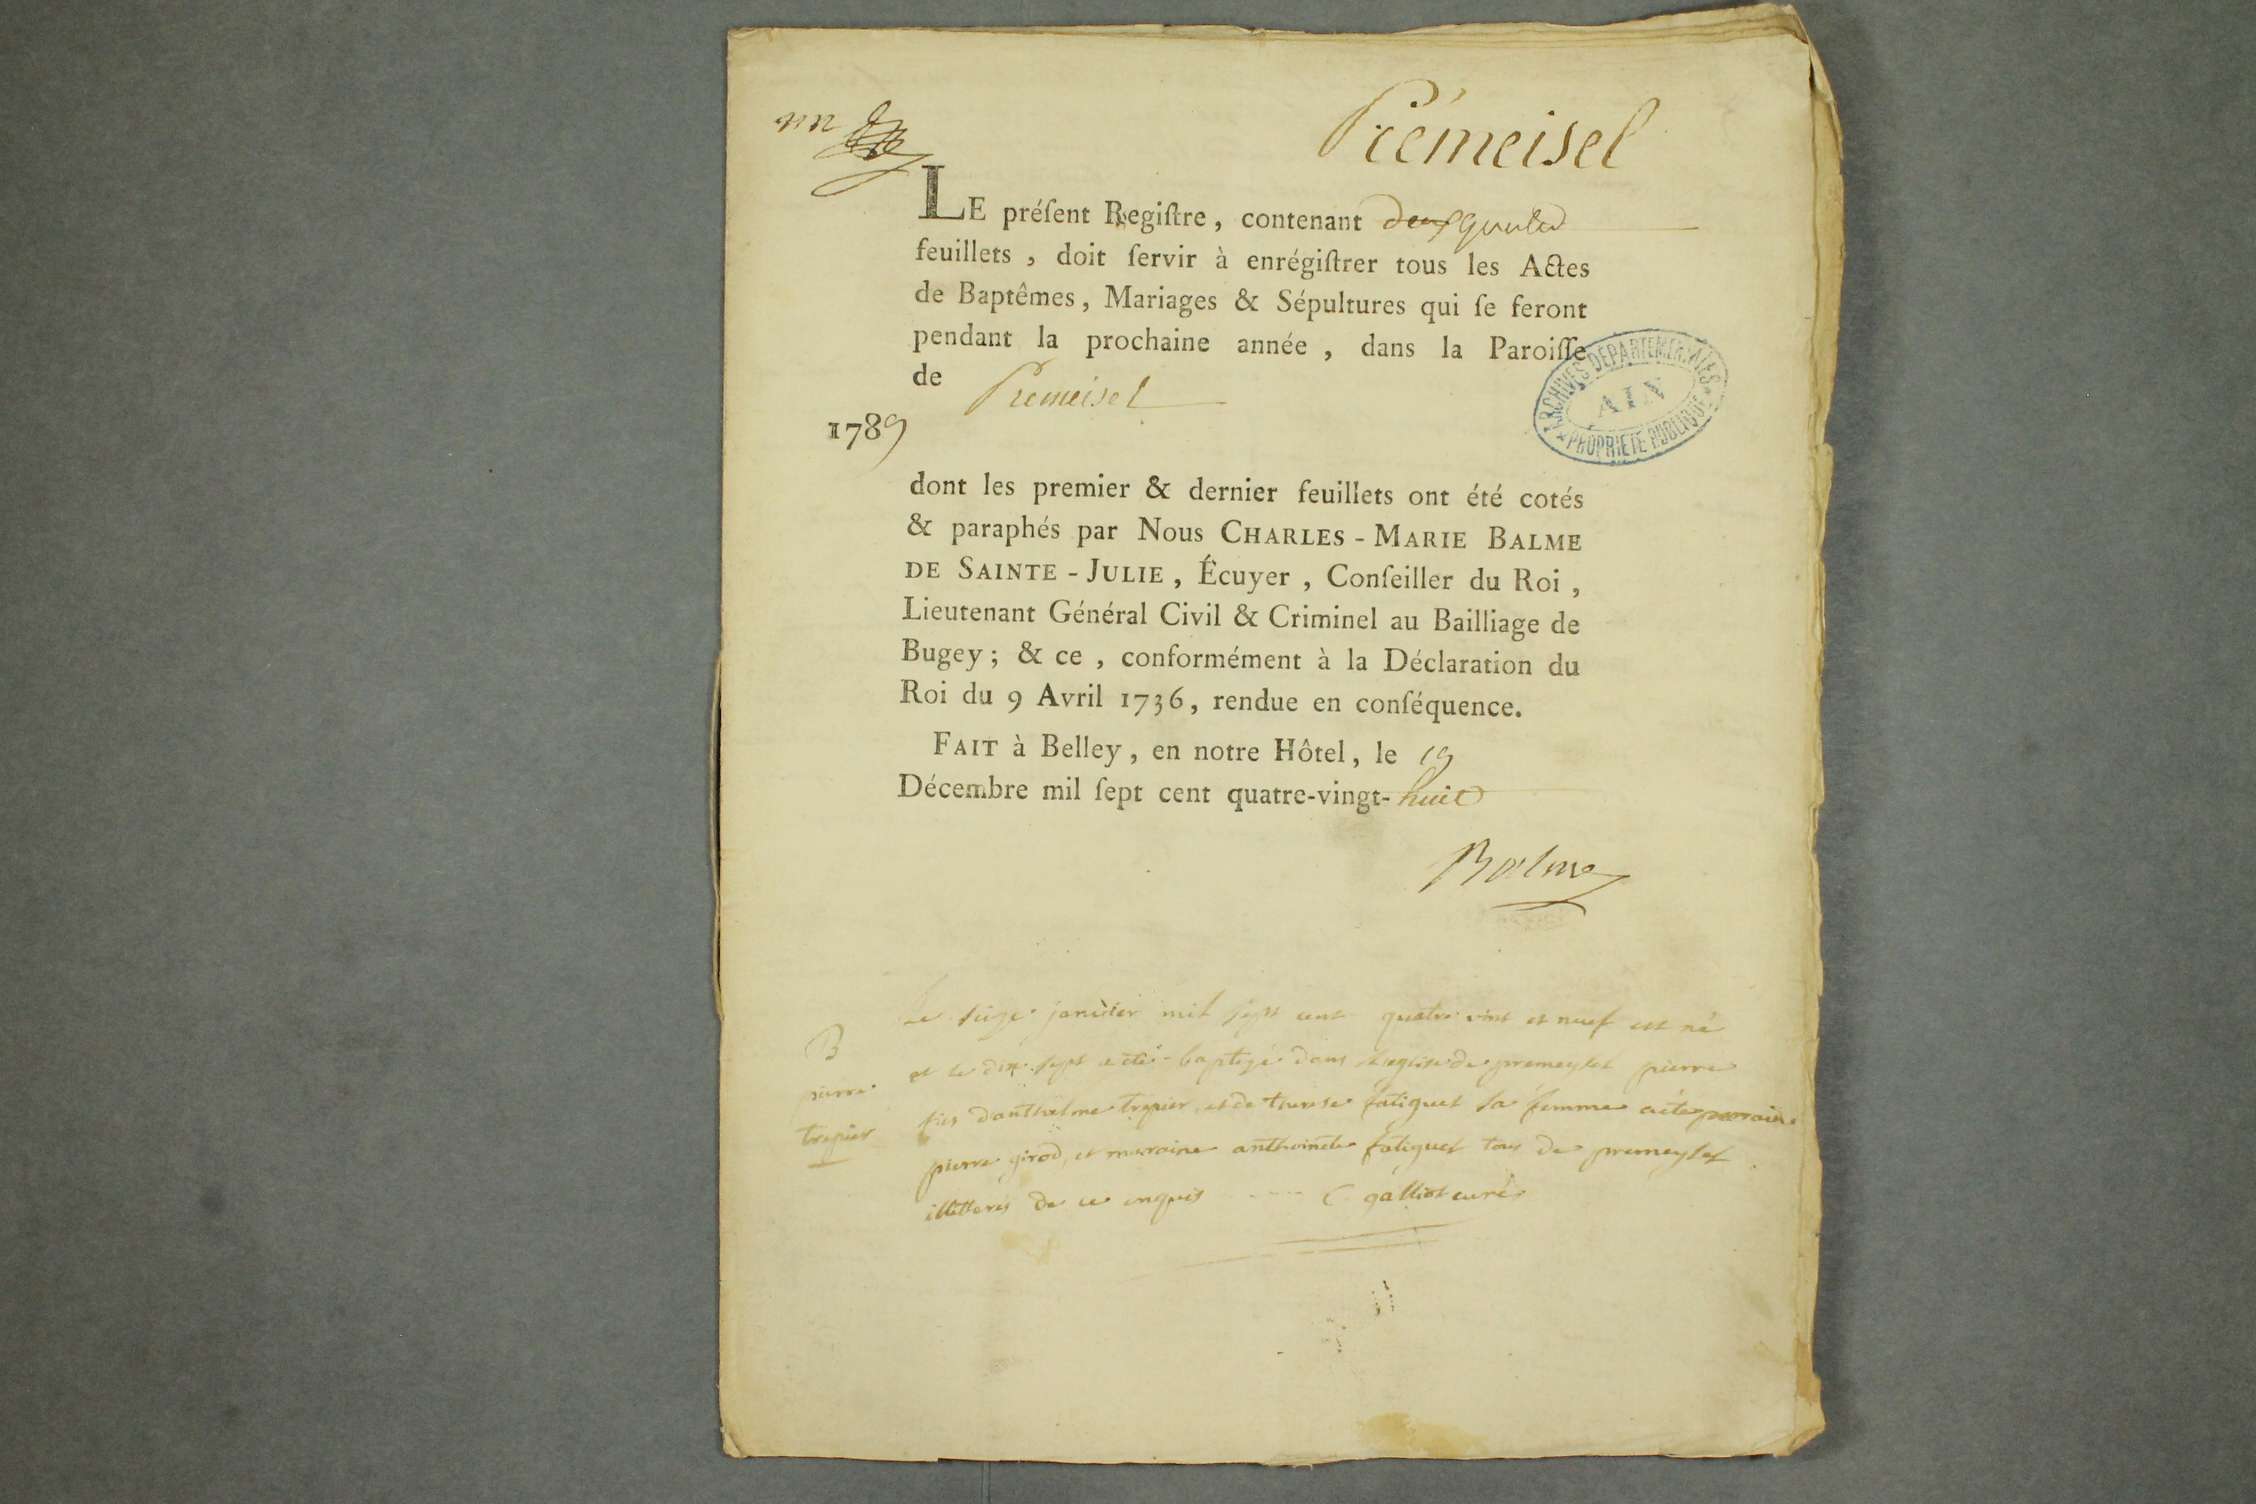 un
Prémeisel
LE préſent Regiſtre, contenant
feuillets, doit ſervir à enrégiſtrer tous les Actes
de Baptêmes, Mariages & Sépultures qui ſe feront
pendant la prochaine année, dans la Paroiſſe
de Premeisel
1789
ARCHIVES DÉPARTEMENTALES
AIN
PROPRIÉTÉ PUBLIQUE
dont les premier & dernier feuillets ont été cotés
& paraphés par Nous CHARLES-MARIE BALME
DE SAINTE-JULIE, Écuyer, Conſeiller du Roi,
Lieutenant Général Civil & Criminel au Bailliage de
Bugey; & ce, conformément à la Déclaration du
Roi du 9 Avril 1736, rendue en conſéquence.
FAIT à Belley, en notre Hôtel, le 19
Décembre mil ſept cent quatre-vingt-huit
Balme
B
pierre
trepier
Le seize janvier mil sept cent quatre vint et neuf est né
et le dix sept a été baptizé dans l'eglise de premeysel pierre
fils d'anthelme trepier et de therese fatiguet sa femme a été parain
pierre girod, et maraine anthoinete fatiguet tous de premeysel
illitterés de ce enquis C galliot curé